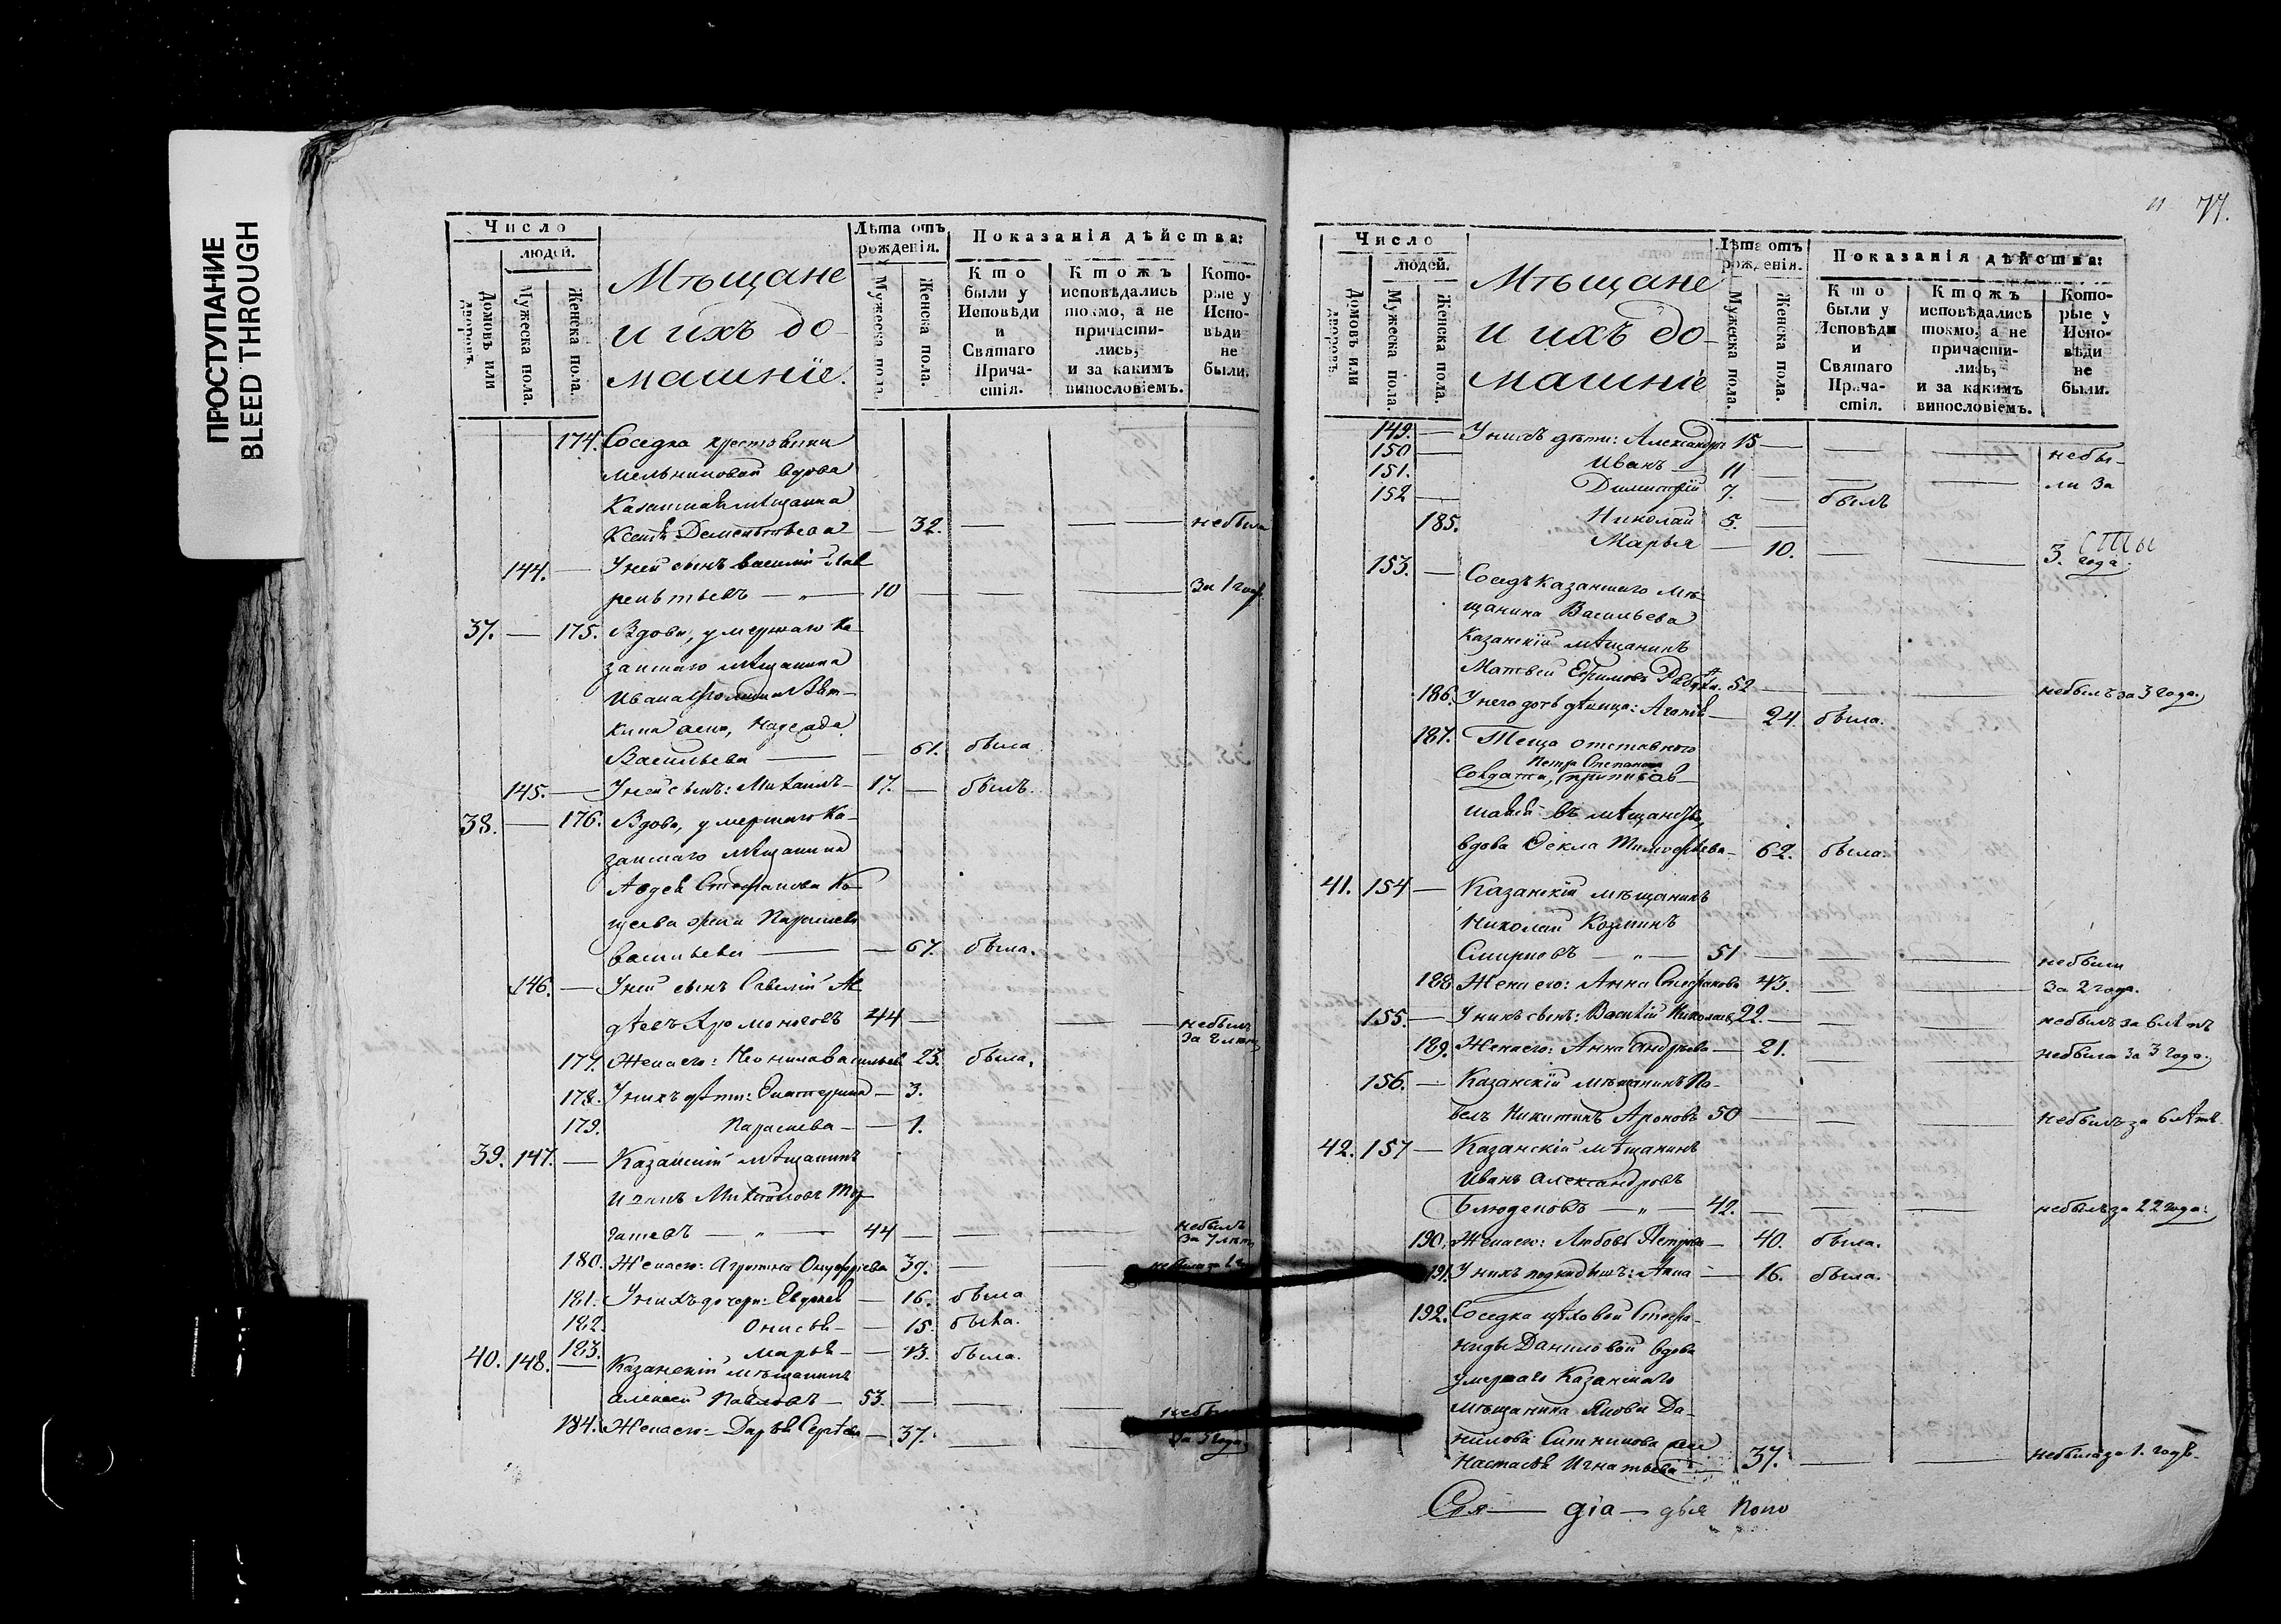 ПРОСТУПАНИЕ
BLEED THROUGH
Число
людей.
Домовъ или дворовъ.
Мужеска пола.
Женска пола.
Мѣщане
и ихъ до-
машніе.
Лѣта отъ
рожденія.
Мужеска пола.
Женска пола.
Показанія дѣйства:
Кто
были у
Исповѣди
и
Святаго
Прича-
стія.
Ктожъ
исповѣдались
токмо, а не
причасти-
лись,
и за какимъ
винословіемъ.
Кото-
рые у
Испо-
вѣди
не
были.
174. Соседка
Мельниковой вдова
мѣщанка
Дементьева — 32. — — — небыла
144. — У ней сынъ Василій Лав
рентьевъ — „ — 10 — — — за 1 годъ
37. — 175. Вдова, умершаго Ка-
занскаго мѣщанина
Ивана
жена, Надежда
Васильева — — 61. была
145. — У ней сынъ: Михаилъ — 17. — былъ.
38. — 176. Вдова, умершаго Ка-
занскаго мѣщанина
Авдея Стефанова Ко-
жена Параскева
Васильева — — 67. была.
146. — У ней сынъ Савелій Ав
дѣевъ 44 — — — небылъ
за лѣтъ
177. Жена его: Неонила Васильева 23. была.
178. У нихъ дѣти: Екатерина — 3.
179. Параскева — — 1.
39. 147. — Казанскій мѣщанинъ
Михайловъ
— „ — 44 — — — небылъ
за 7 лѣтъ
180. Жена его: Агрипина Онуфріева 39. —
181. У нихъ дочери: Евдокія — 16. была
182. Онисья — — 15. была.
183. Марья — — 13. была.
40. 148. — Казанскій мѣщанинъ
Алексей Павловъ — 53. — — —
184. Жена его: Дарья Сергѣева — 37. — —
за 3 года
77.
Число
людей.
Домовъ или дворовъ.
Мужеска пола.
Женска пола.
Мѣщане
и ихъ до-
машніе
Лѣта отъ
рожденія.
Мужеска пола.
Женска пола.
Показанія дѣйства:
Кто
были у
Исповѣди
и
Святаго
Прича-
стія.
Ктожъ
исповѣдались
токмо, а не
причасти-
лись,
и за какимъ
винословіемъ.
Кото-
рые у
Испо-
вѣди
не
были.
149. — У нихъ дѣти: Александръ 15 — — — небы-
150 — Иванъ — 11 — — — ли за
151. Димитрій 7. — былъ
152 — Николай 5. —
185. Марья — 10. — — 3. года.
153. — Соседъ Казанскаго Мѣ-
щанина Васильева
Казанскій мѣщанинъ
Матвей Ефимовъ 52 — — — небылъ за 3 года.
186. У него дочь дѣвица: Агафія — 24. была.
187. Теща отставного
Петра Степанова
Солдата, приписав-
шаяся въ мѣщанство,
вдова Фекла Тимофѣева — 62. была.
41. 154 — Казанскій мѣщанинъ
Николай Козминъ
Смирновъ — „ — 51 — — — небыли
188 Жена его: Анна Стефанова 43. — — за 2 года.
155. — У нихъ сынъ: Василій Николаевъ 22. — — — небылъ за 6 лѣтъ
189. Жена его: Анна Андреева — 21. — — небыла за 3 года.
156. — Казанскій мѣщанинъ Па-
велъ Никитинъ 50 — — — небылъ за 6 лѣтъ.
42. 157 — Казанскій мѣщанинъ
Иванъ Александровъ
Блюденовъ — „ — 42. — — — небылъ за 22 года.
190. Жена его: Любовь Петрова — 40. была.
191. У нихъ подкидышъ: Анна — 16. была.
192. Соседка цѣховой Стефа-
ниды Даниловой вдова
умершаго Казанскаго
мѣщанина Якова Да-
нилова Ситникова жена
Настасья Игнатьева — 37. — — небыла за 1. годъ.
Сея — діа — дья Попо